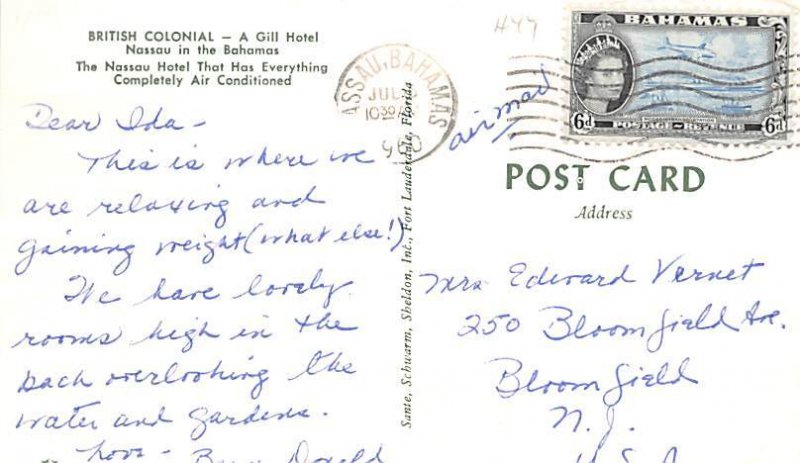 BRITISH COLONIAL — A Gill Hotel
Nassau in the Bahamas
The Nassau Hotel That Has Everything
Completely Air Conditioned
Dear Ida -
This is where we
are relaxing and
gaining weight (what else!)
We have lovely
rooms high in the
back overlooking the
water and gardens.
Love -
Donald
Sante, Schwarm, Sheldon, Inc., Fort Lauderdale, Florida
ASSAU, BAHAMAS
JUL
1030A
air mail
BAHAMAS
6d
POSTAGE REVENUE
6d
POST CARD
Address
Mrs Edward Vernet
250 Bloomfield Ave.
Bloomfield
N.J.
U.S.A